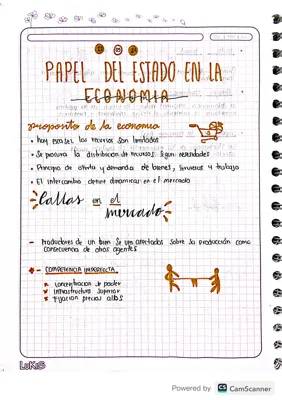 PAPEL DEL ESTADO EN LA
ECONOMIA
proposito de la economia
• hoy escasez los recursos son limitados
• Se procura la distribución de recursos segun necesidades
• Principio de oferta y demanda de bienes, servicios y trabajo
• El intercambio define dinamicas en el mercado
fallas en el
mercado
- Productores de un bien se ven afectados sobre la producción como
consecuencia de otros agentes
COMPETENCIA IMPERFECTA
x concentracion de poder
x infraestructura superior
x fijacion precios altos
Powered by CS CamScanner